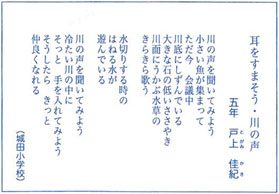 耳をすまそう・川の声
五年 戸上 佳紀
とがみ かき
川の声を聞いてみよう
小さい魚が集まって
ただ今 会議中
川底にしずんでいる
大きな石の低いささやき
川面にうかぶ水草の
きらきら歌う
水切りする時の
はねる水が
遊んでいる
川の声を聞いてみよう
冷たい川の中に
そっと 手を入れてみよう
そうしたら きっと
仲良くなれる
(城田小学校)